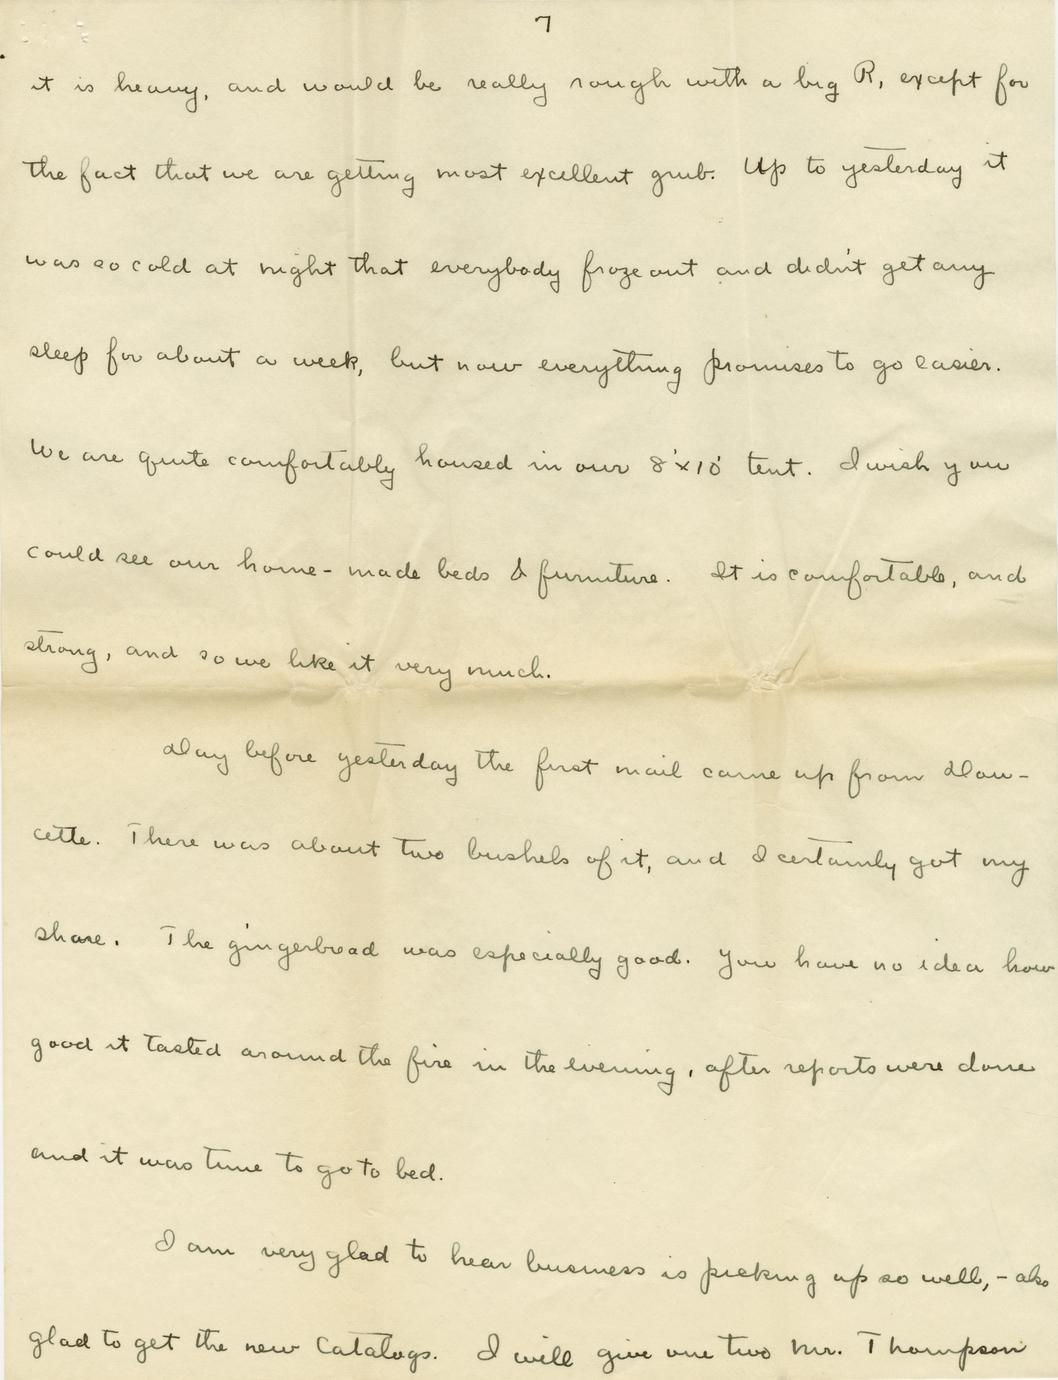 7
it is heavy, and would be really rough with a big R, except for
the fact that we are getting most excellent grub. Up to yesterday it
was so cold at night that everybody froze out and didn't get any
sleep for about a week, but now everything promises to go easier.
We are quite comfortably housed in our 8'x10' tent. I wish you
could see our home-made beds & furniture. It is comfortable, and
strong, and so we like it very much.
Day before yesterday the first mail came up from Dou-
cette. There was about two bushels of it, and I certainly got my
share. The gingerbread was especially good. You have no idea how
good it tasted around the fire in the evening, after reports were done
and it was time to go to bed.
I am very glad to hear business is picking up so well, - also
glad to get the new Catalogs. I will give one two Mr. Thompson